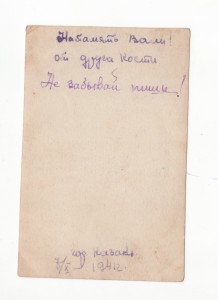 На память Вали!
от друга Кости
Не забывай пиши!
гор Казань
7/X - 1941г.